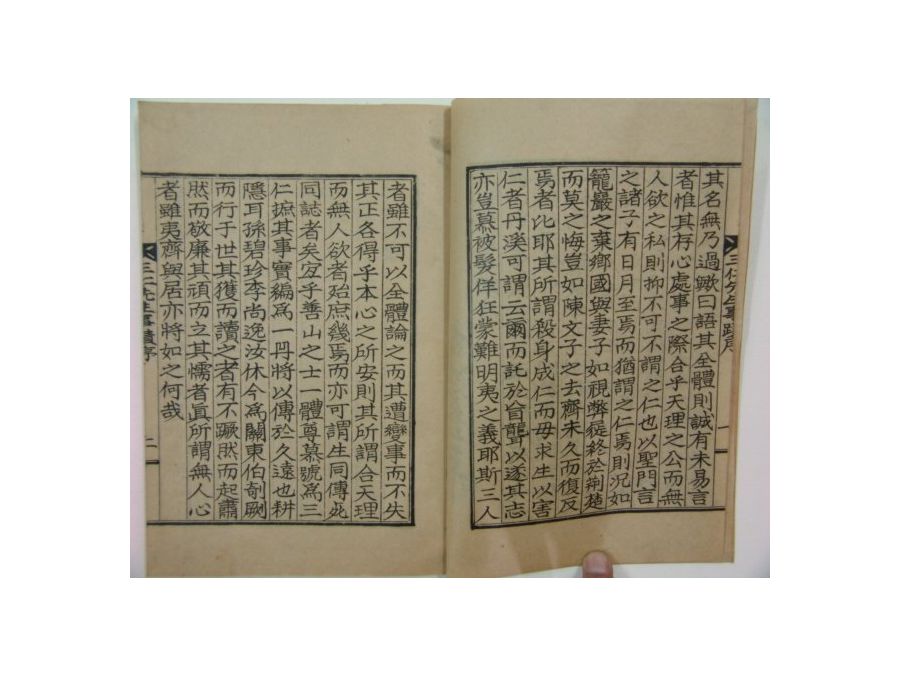 三仁先生事蹟序
一
其名無乃過歟曰語其全體則誠有未易言
者惟其存心處事之際合乎天理之公而無
人欲之私則抑不可不謂之仁也以聖門言
之諸子有日月至焉而猶謂之仁焉則況如
籠巖之棄鄕國與妻子如視弊屣終於荊楚
而莫之悔豈如陳文子之去齊未久而復反
焉者比耶其所謂殺身成仁而毋求生以害
仁者丹溪可謂云爾而託於盲聾以遂其志
亦豈慕被髮佯狂蒙難明夷之義耶斯三人
者雖不可以全體論之而其遭變事而不失
其正各得乎本心之所安則其所謂合天理
而無人欲者殆庶幾焉而亦可謂生同傳死
同誌者矣宜乎善山之士一體尊慕號爲三
仁摭其事實編爲一冊將以傳於久遠也耕
隱耳孫碧珍李尚逸汝休今爲關東伯剞劂
而行于世其獲而讀之者有不蹶然而起肅
然而敬廉其頑而立其懦者眞所謂無人心
者雖夷齊與居亦將如之何哉
三仁先生事蹟序
二